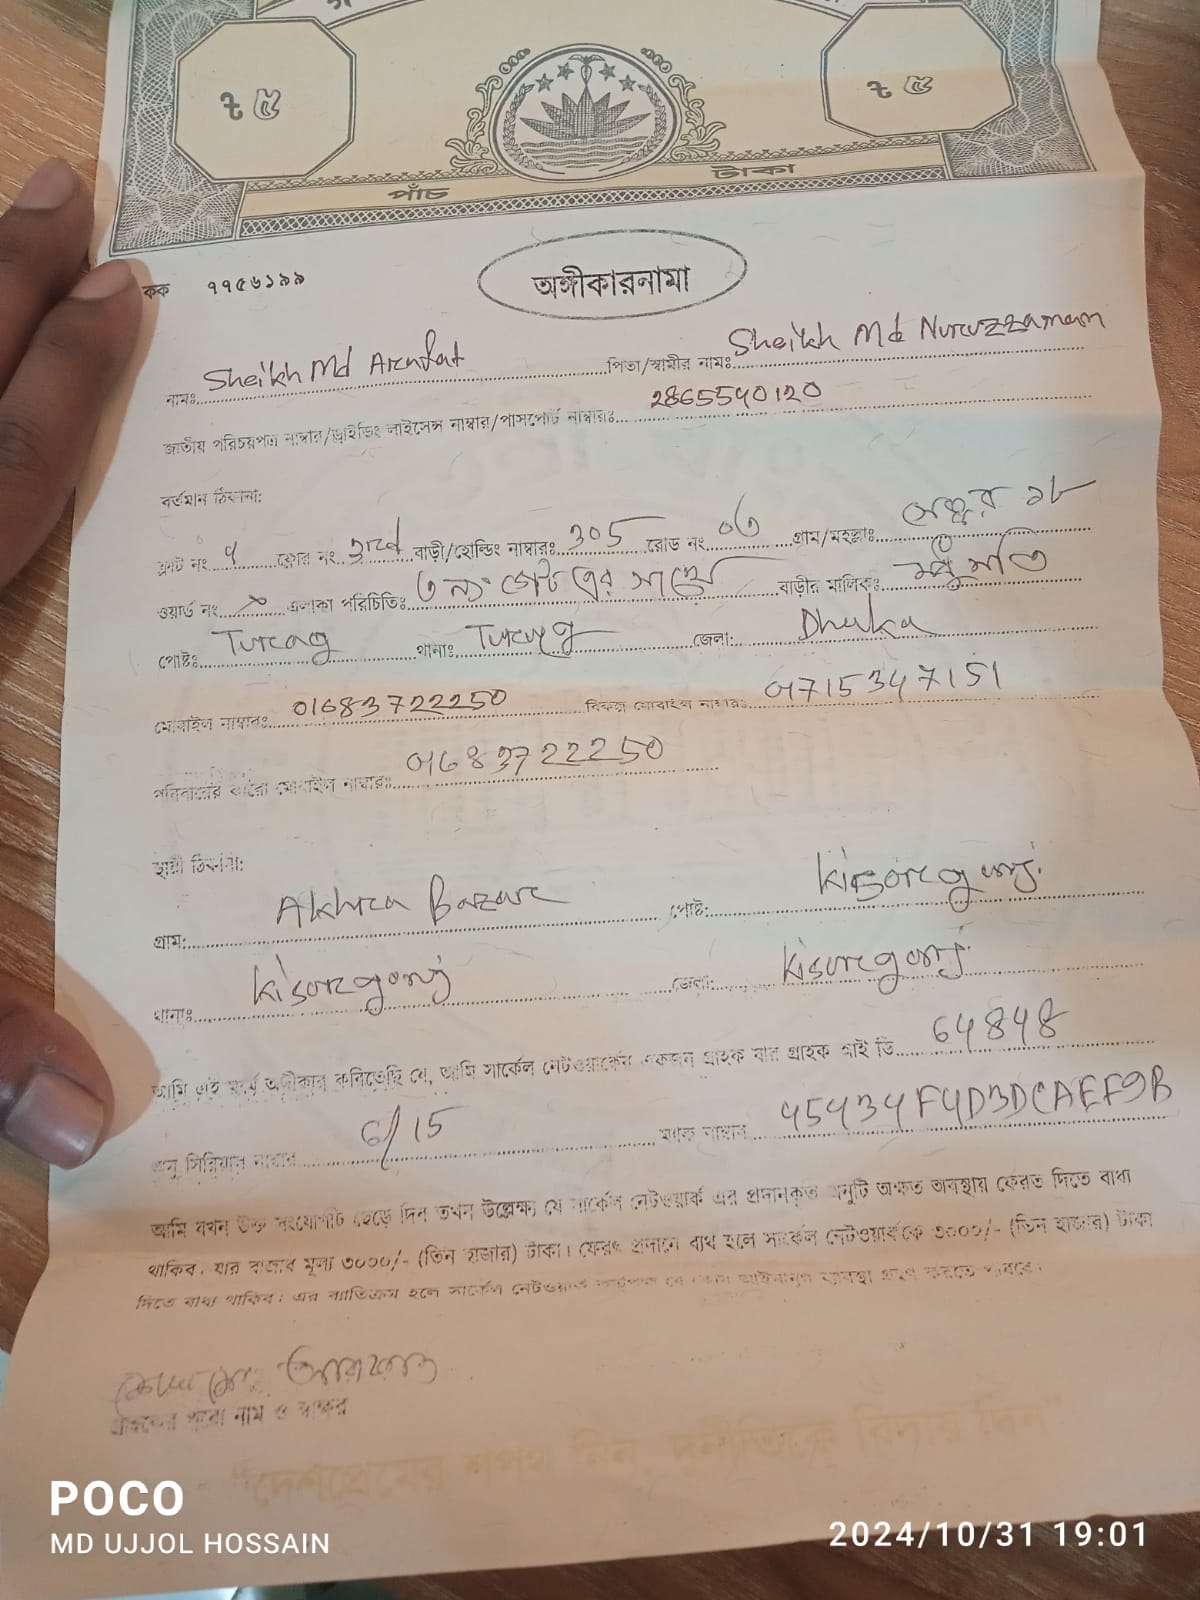 ৳ ৫ ৳ ৫
পাঁচ টাকা
কক ৭৭৫৬১৯৯
অঙ্গীকারনামা
নামঃ Sheikh Md Arafat পিতা/স্বামীর নামঃ Sheikh Md Nuruzzaman
জাতীয় পরিচয়পত্র নাম্বার/ড্রাইভিং লাইসেন্স নাম্বার/পাসপোর্ট নাম্বারঃ 2865540120
বর্তমান ঠিকানা:
ফ্লাট নং ফ্লোর নং 3rd বাড়ী/হোল্ডিং নাম্বারঃ 305 রোড নং ০৩ গ্রাম/মহল্লাঃ ১৮
ওয়ার্ড নং এলাকা পরিচিতিঃ ৩ নং গেট এর সাথে বাড়ীর মালিকঃ
পোষ্টঃ Turag থানাঃ Turag জেলা: Dhaka
মোবাইল নাম্বারঃ 01683722250 বিকল্প মোবাইল নাম্বারঃ 01715347151
পরিবারের কারো মোবাইল নাম্বারঃ 01683722250
স্থায়ী ঠিকানা:
গ্রাম: Akhra Bazar পোষ্ট: kisoregonj
থানাঃ kisoregonj জেলা: kisoregonj
আমি এই মর্মে অঙ্গীকার করিতেছি যে, আমি সার্কেল নেটওয়ার্কের একজন গ্রাহক যার গ্রাহক আই ডি 64848
অনু সিরিয়াল নাম্বার 6/15 ম্যাক নাম্বার 45434F4D3DCAEF9B
আমি যখন উক্ত সংযোগটি ছেড়ে দিব তখন উল্লেক্ষ্য যে সার্কেল নেটওয়ার্ক এর প্রদানকৃত অনুটি অক্ষত অবস্থায় ফেরত দিতে বাধ্য
থাকিব, যার বাজার মূল্য ৩০০০/- (তিন হাজার) টাকা। ফেরৎ প্রদানে ব্যর্থ হলে সার্কেল নেটওয়ার্ককে ৩০০০/- (তিন হাজার) টাকা
দিতে বাধ্য থাকিব। এর ব্যতিক্রম হলে সার্কেল নেটওয়ার্ক কর্তৃপক্ষ যে কোন আইনানুগ ব্যবস্থা গ্রহণ করতে পারবে।
আরাফাত
গ্রাহকের পুরো নাম ও স্বাক্ষর
"দেশপ্রেমের শপথ নিন, দুর্নীতিকে বিদায় দিন"
POCO
MD UJJOL HOSSAIN 2024/10/31 19:01